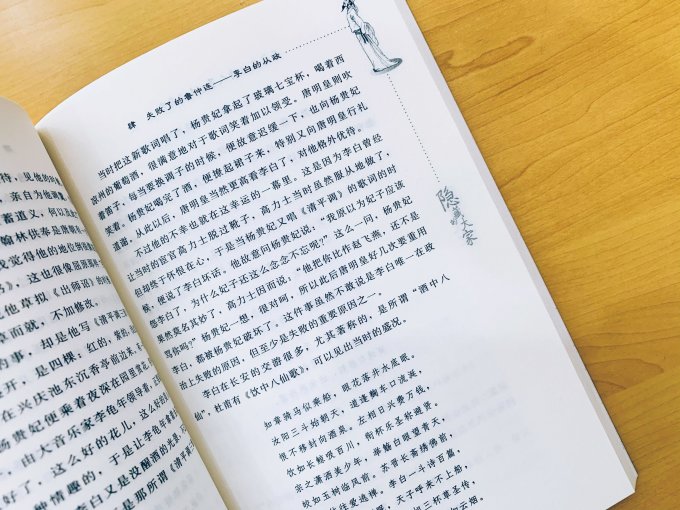 待，见他的
亲自为他调
蓄道义，何以及
翰林供奉是唐明
我觉得他的地位倒
书》，这也很像屈原
他草拟《出师诏》的
草而就，不加修改。
的事，却是他写《清平调》
开，是四棵：红的，紫的，
在兴庆池东沉香亭前边来，
杨贵妃便乘着夜深在园里赏花
由大音乐家李龟年领导着，
好了，这么好的花儿，这么好
种情趣的，于是让李龟年
李白又是没醒酒的
是那所谓《清平
肆 失败了的鲁仲连——李白的从政
当时把这新歌词唱了，杨贵妃拿起了玻璃七宝杯，喝着西
凉州的葡萄酒，很满意地对于歌词笑着加以领受。唐明皇则吹
着笛子，每当要换调子的时候，便故意迟缓一下，也向杨贵妃
笑着。杨贵妃喝完了酒，便撩起裙子来，特别又向唐明皇行礼
道谢，从此以后，唐明皇当然更高看李白了，对他格外优待。
不过他的不幸也就在这幸运的一幕里，这是因为李白曾经
让当时的宦官高力士脱过靴子，高力士当时虽然服从地做了，
但却终于怀恨在心，于是当杨贵妃又唱《清平调》的歌词的时
候，便说了李白坏话。他故意问杨贵妃说：“我原以为妃子应该
怨李白了，为什么妃子还这么念念不忘呢？”这么一问，杨贵妃
果然莫名其妙了，高力士因而说，“他把你比作赵飞燕，还不是
骂你吗？”杨贵妃一想，很对呵，所以此后唐明皇好几次要重用
李白，都被杨贵妃破坏了。这件事虽然不敢说是李白唯一在政
治上失败的原因，但至少是失败的重要原因之一。
李白在长安的交游很多，尤其著称的，是所谓“酒中八
仙”，杜甫有《饮中八仙歌》，可以见出当时的盛况。
知章骑马似乘船，眼花落井水底眠。
汝阳三斗始朝天，道逢麴车口流涎，
恨不移封向酒泉。左相日兴费万钱，
饮如长鲸吸百川，衔杯乐圣称避贤。
宗之潇洒美少年，举觞白眼望青天，
皎如玉树临风前。苏晋长斋绣佛前，
往往爱逃禅。李白一斗诗百篇，
天子呼来不上船，
三杯草圣传，
如云烟。
隐藏的大家